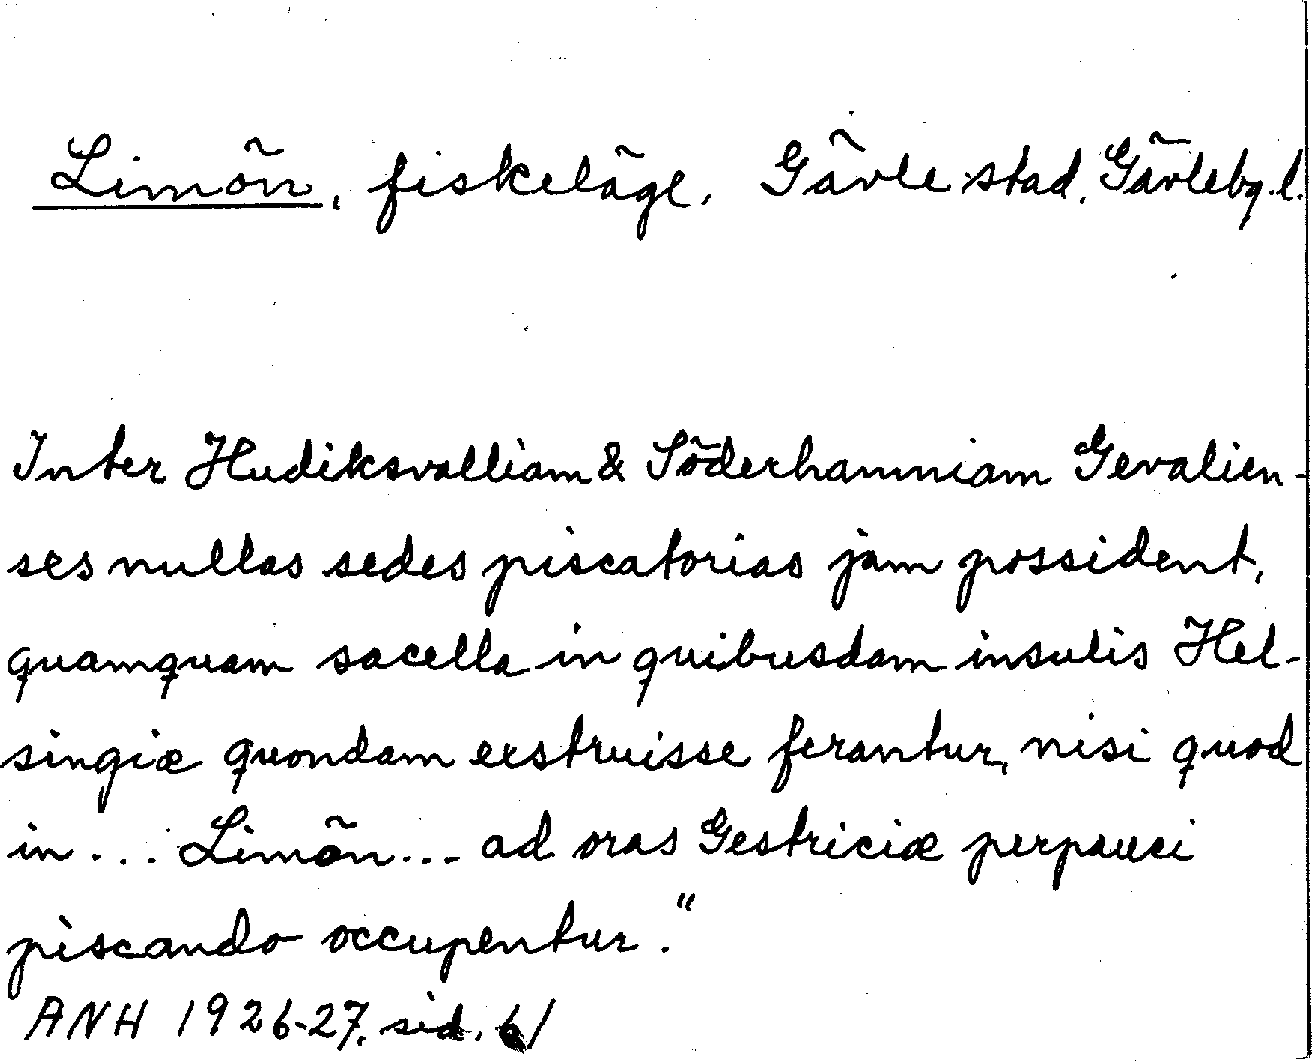 Limön, fiskeläge, Gävle stad, Gävlebg. l.
Inter Hudiksvalliam & Söderhamniam Gevalien-
ses nullas sedes piscatorias jam possident,
quamquam sacella in quibusdam insulis Hel-
singiæ quondam exstruisse ferantur, nisi quod
in ... Limön ... ad oras Gestriciæ perpauci
piscando occupentur."
ANH 1926-27, sid. 61